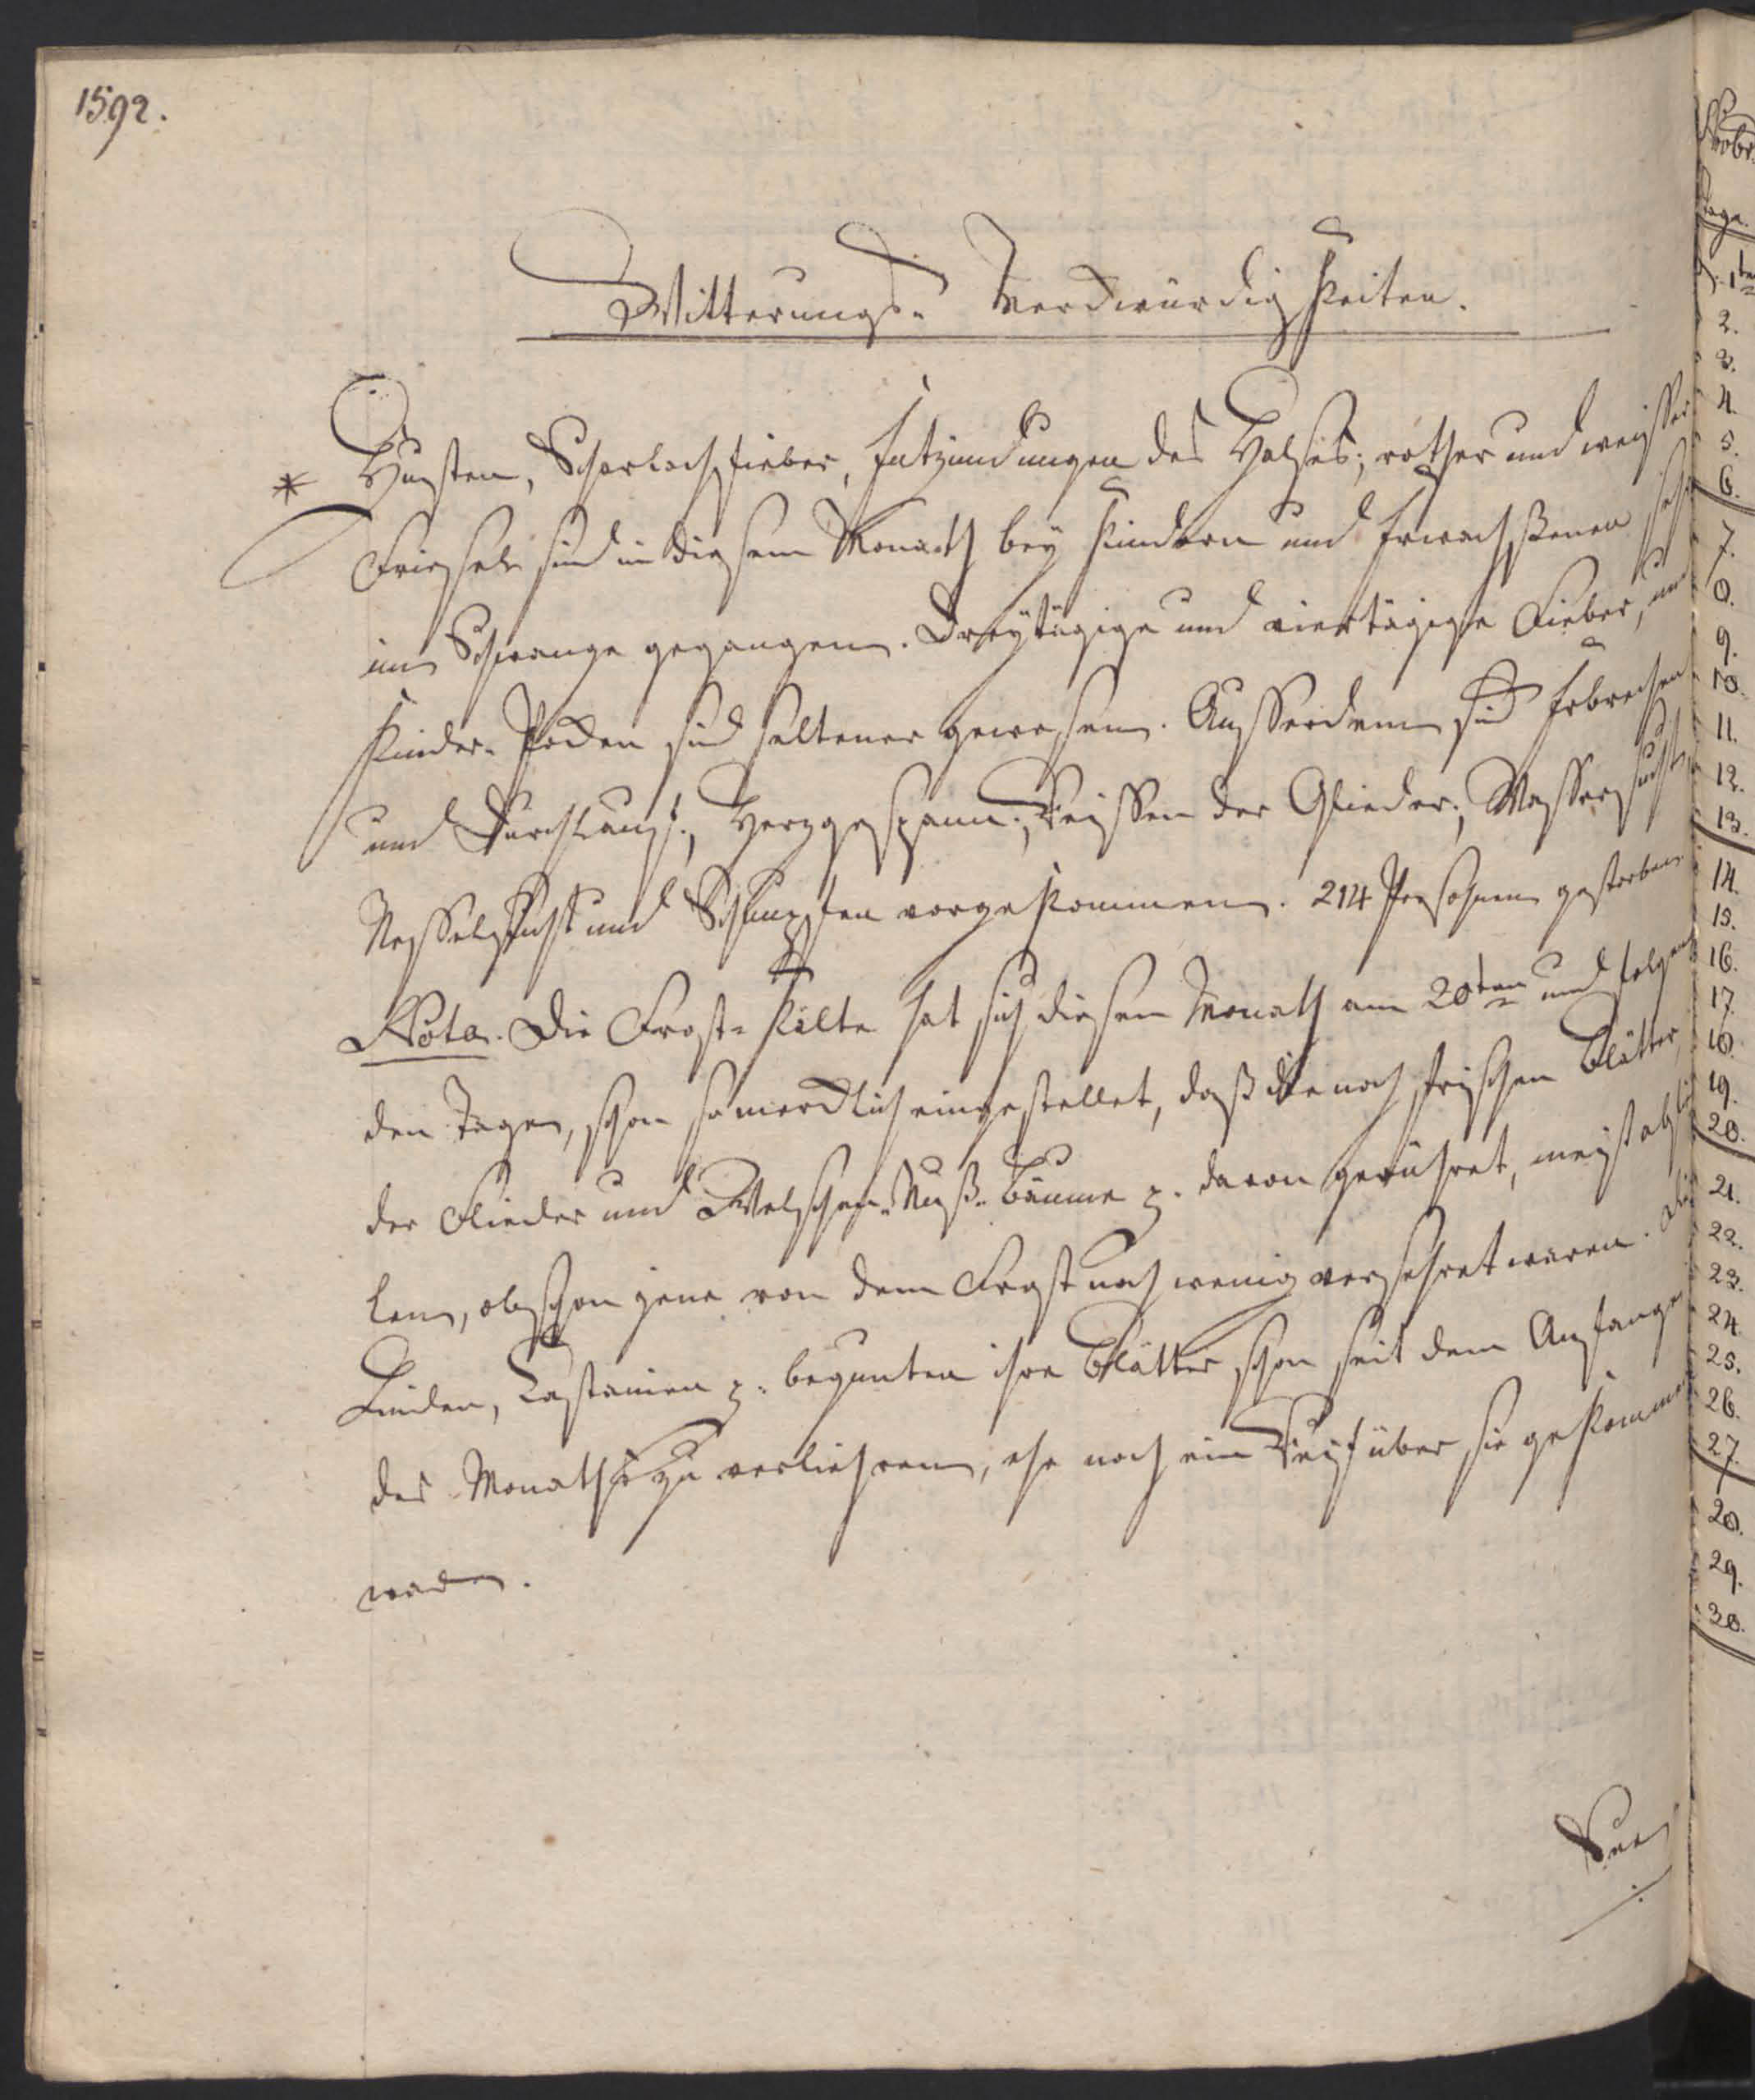 1592.
Witterungs- Merckwürdigkeiten.
* Husten, Scharlachfieber, Entzündungen des Halses; rother und weisser
Friesel sind in diesem Monath bey Kindern und Erwachßenen sehr
im Schwange gegangen. Dreytägige und viertägige Fieber, und
Kinder-Pocken sind seltener gewesen. Ausserdem sind Erbrechen
und Durchlauf; Herzgespann; Reissen der Glieder; Wassersucht
Nesselsucht und Schnupfen vorgekommen. 214 Persohnen gestorben
Nota. Die Frost-Kälte hat sich diesen Monath am 20ten und folgen
den Tagen, schon so mercklich eingestellet, daß die noch frischen Blätter,
der Flieder und Welschen-Nuß-Bäume p. davon gerühret, meist abfie
len, obschon jene von dem Frost noch wenig versehret waren. Die
Linden, Castanien p. begunten ihre Blätter schon seit dem Anfange
des Monaths zu verliehren, ehe noch ein Reif über sie gekommen
war.
Novbr.
Tage.
1te
2.
3.
4.
5.
6.
7.
8.
9.
10.
11.
12.
13.
14.
15.
16.
17.
18.
19.
20.
21.
22.
23.
24.
25.
26.
27.
28.
29.
30.